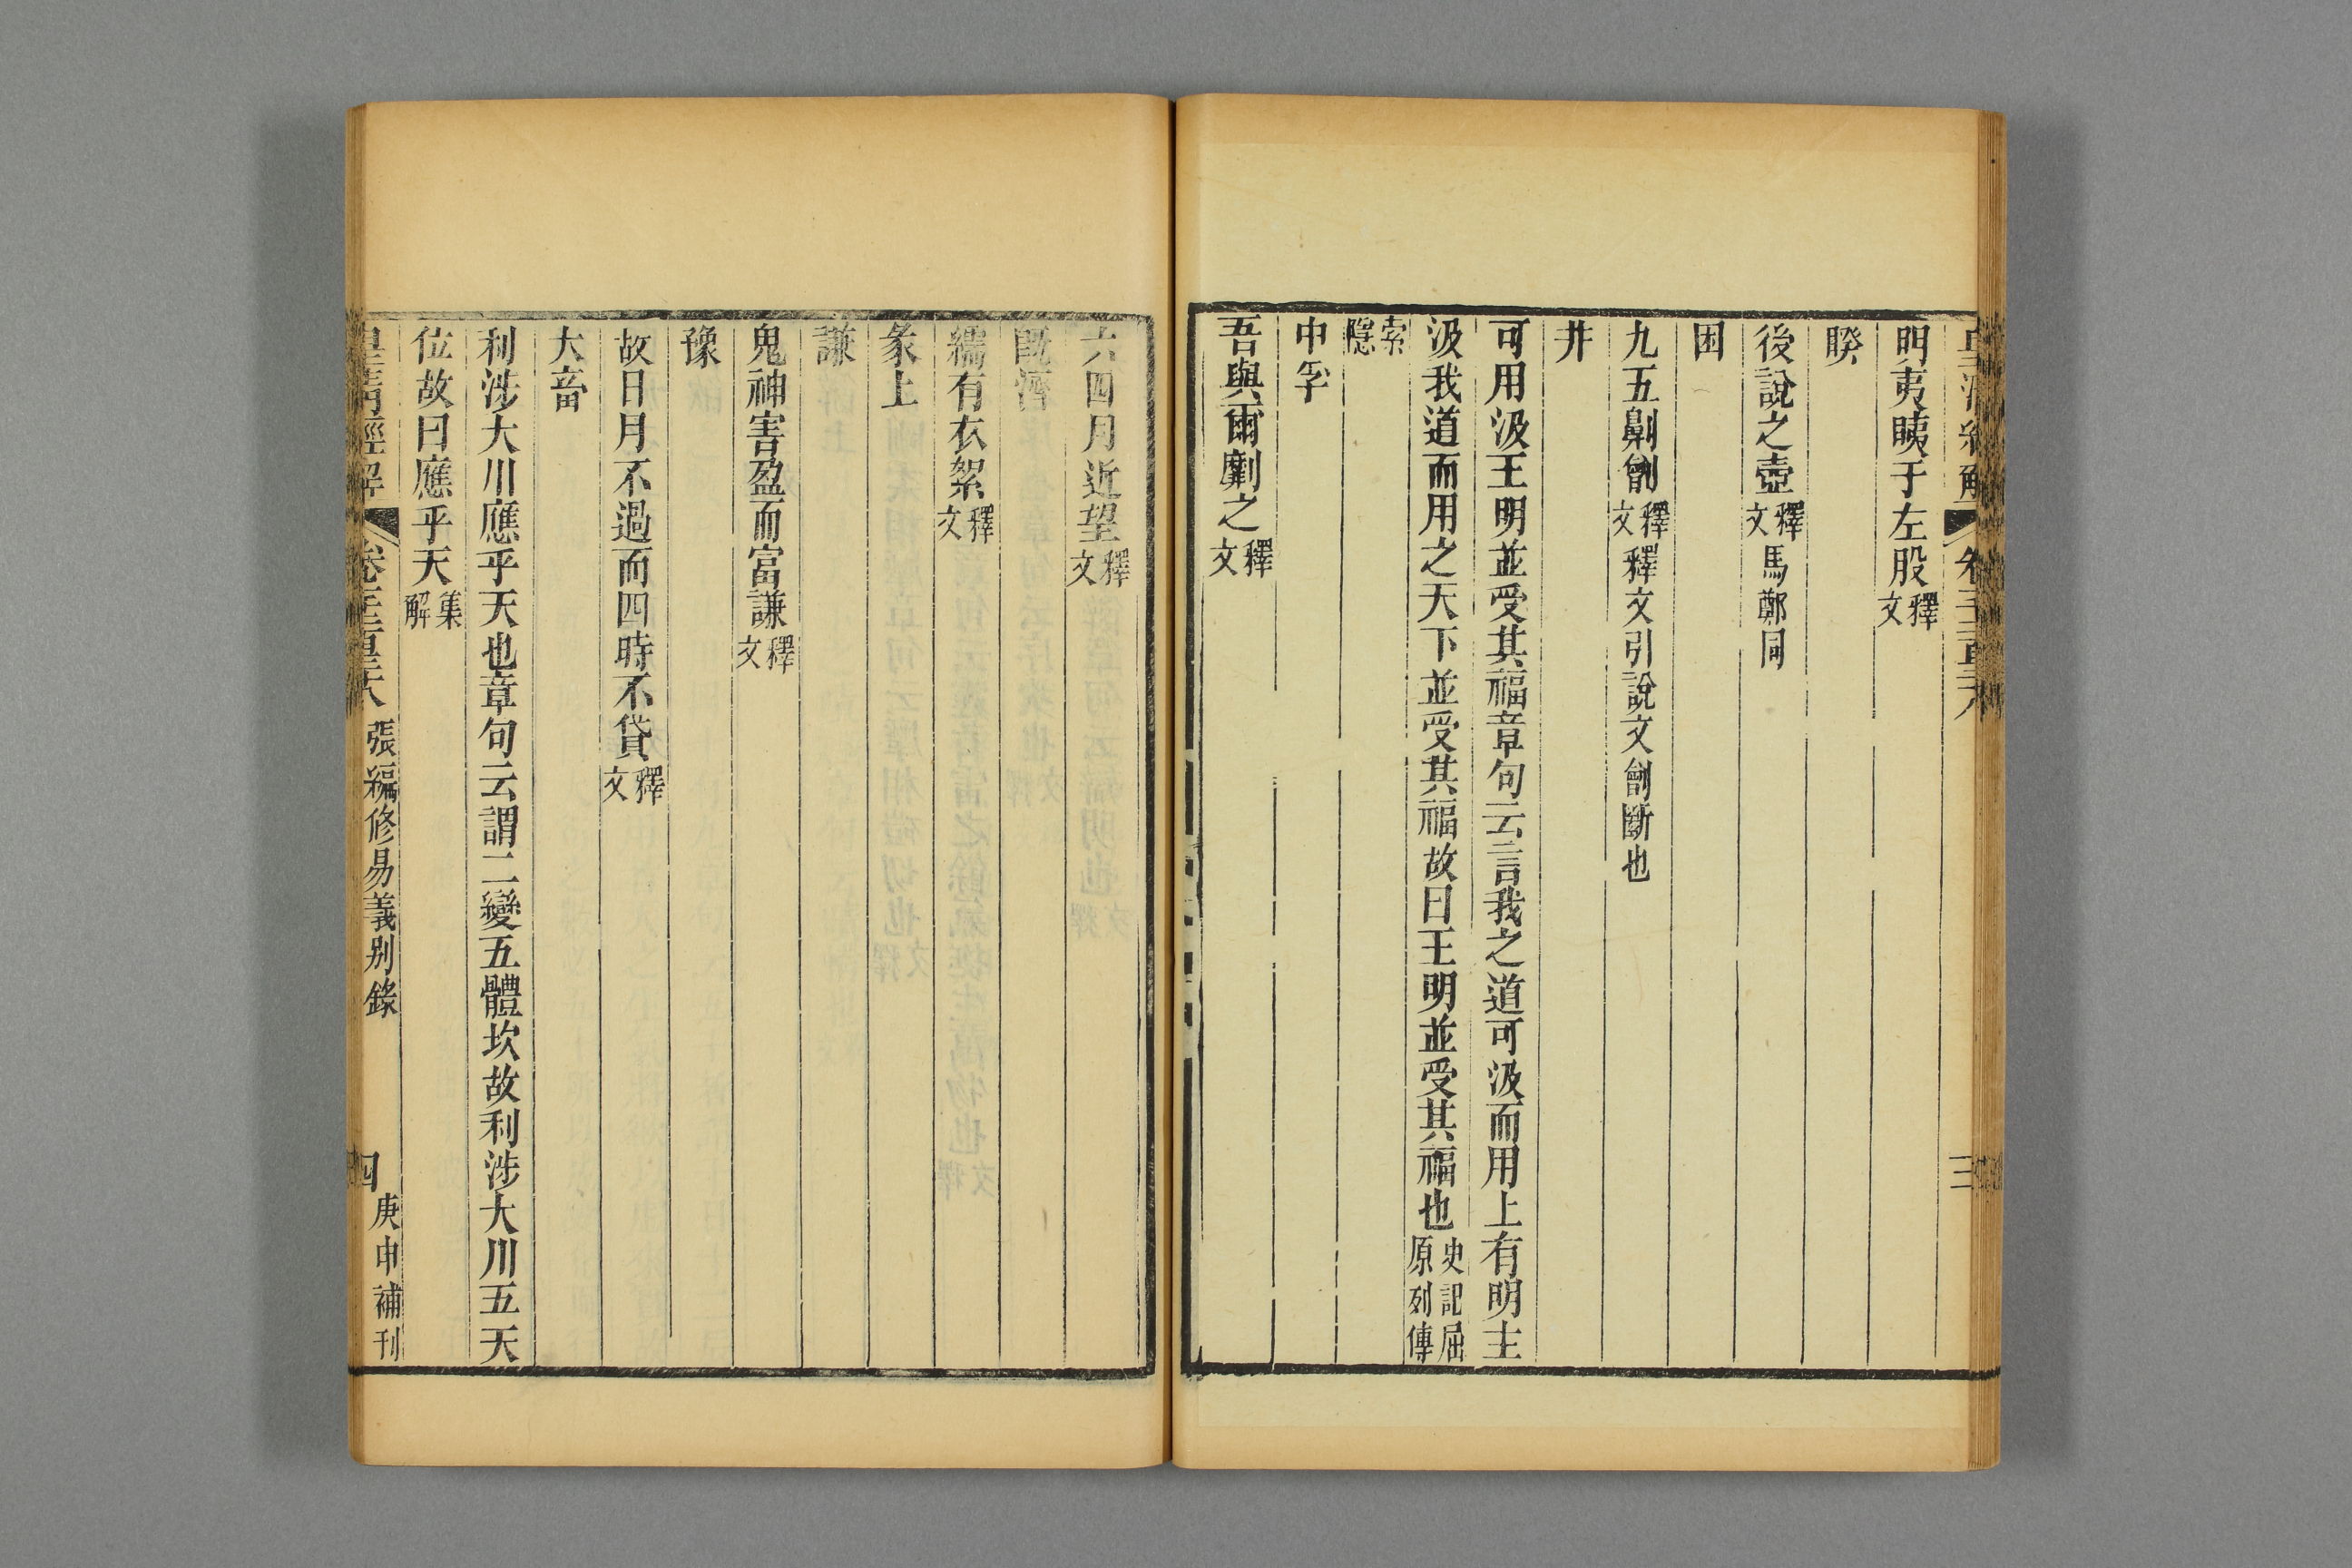 明夷睇于左股釋文
睽
後說之壺釋文馬鄭同
困
九五劓劊釋文釋文引說文劊斷也
井
可用汲王明並受其福章句云言我之道可汲而用上有明主
汲我道而用之天下並受其福故曰王明並受其福也史記屈原列傳
索隱
中孚
吾與爾劘之釋文
六四月近望釋文
既濟
繻有衣絮釋文
彖上
謙
鬼神害盈而富謙釋文
豫
故日月不過而四時不貸釋文
大畜
利涉大川應乎天也章句云謂二變五體坎故利涉大川五天
位故曰應乎天集解
皇清經解 卷千二百三十八 張編修易義別錄 四 庚申補刊